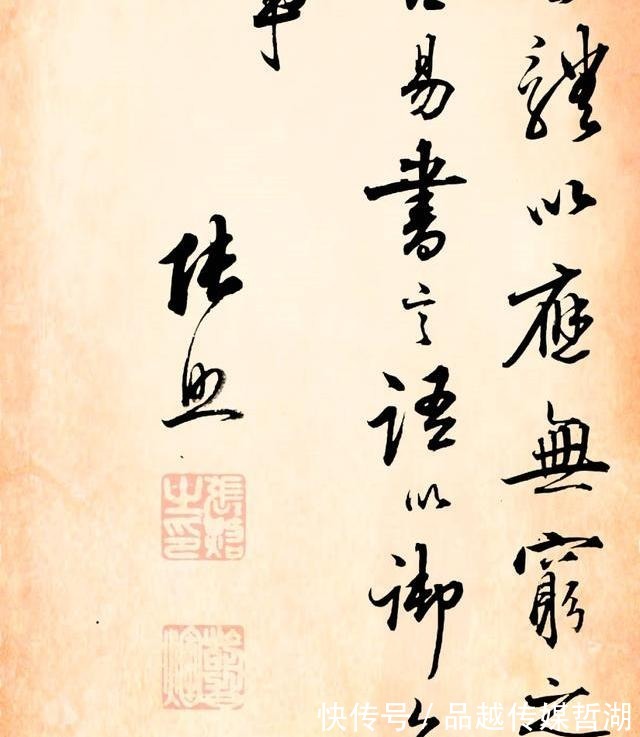 體以應無窮之
易書言語以御
張照
張照之印
快传号/品越传媒哲湖